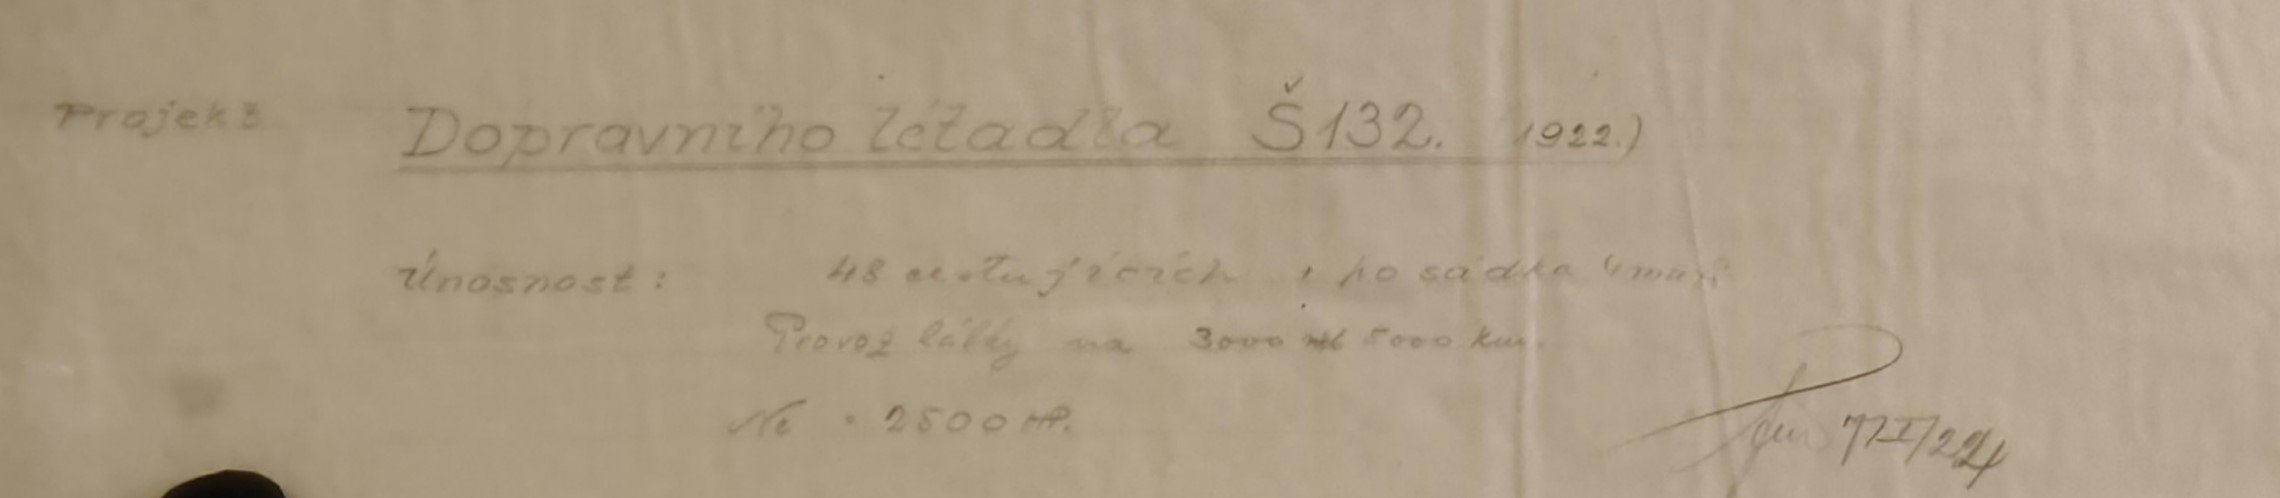 Projekt Dopravního létadla Š132. 1922.)
Únosnost: 48 cestujících, posádka 4 muži
Provoz. látky na 3000 až 5000 km.
Ne = 2500 HP.
7/I/24